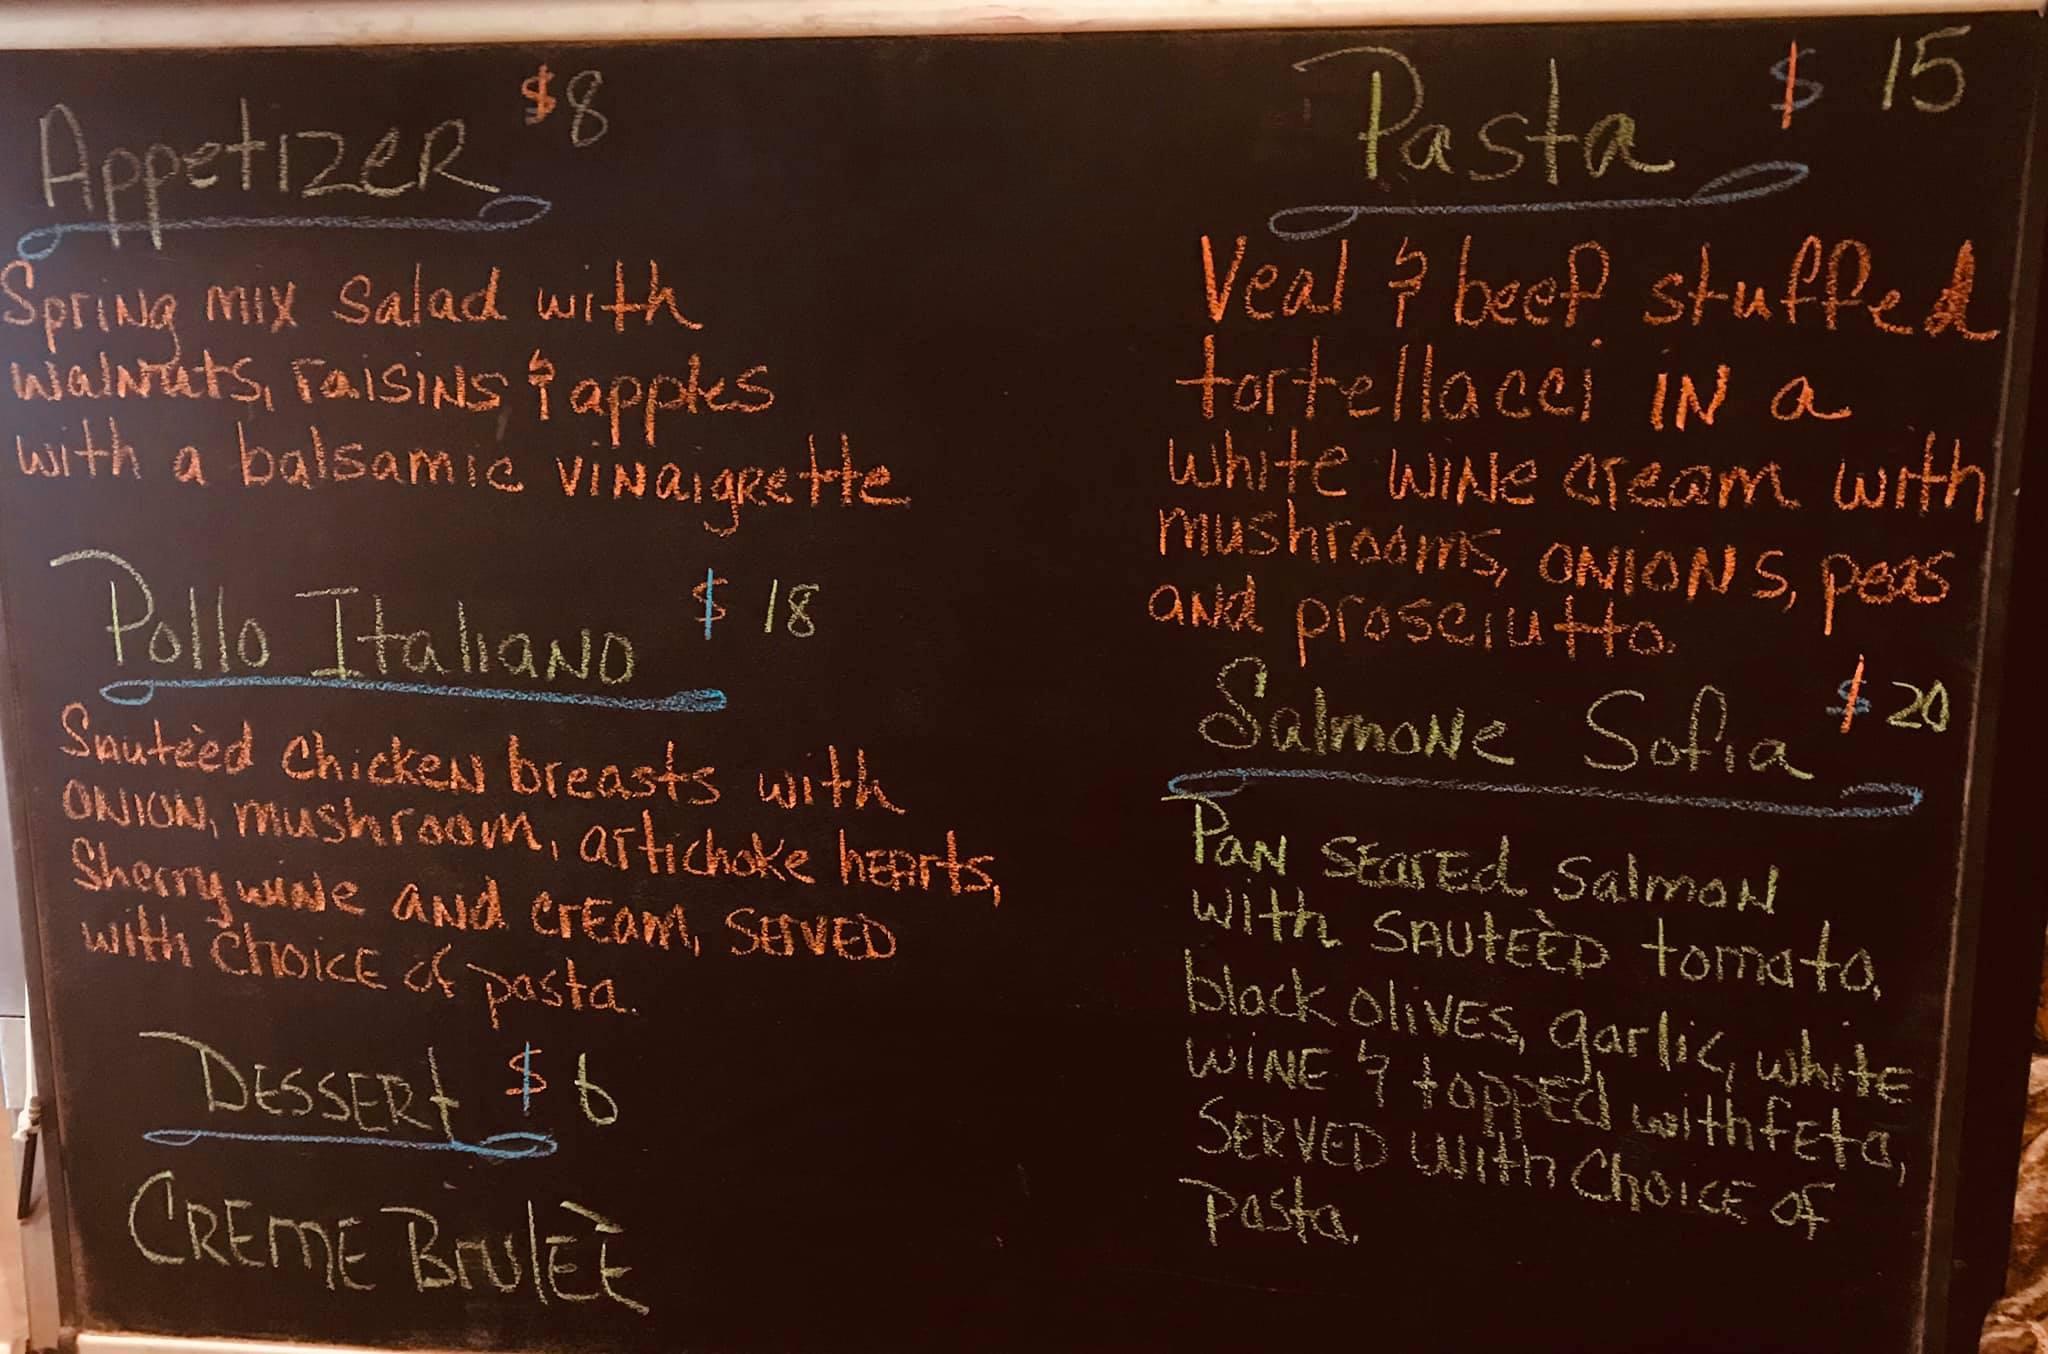 Appetizer $8
Spring mix salad with
walnuts, raisins & apples
with a balsamic vinaigrette
Pollo Italiano $18
Sauteèd chicken breasts with
onion, mushroom, artichoke hearts,
Sherry wine and cream, served
with choice of pasta.
Dessert $6
Creme Bruleè
Pasta $15
Veal & beef stuffed
tortellacci in a
white wine cream with
mushrooms, onions, peas
and prosciutto.
Salmone Sofia $20
Pan seared salmon
with sauteèd tomato,
black olives, garlic, white
wine & topped with feta,
served with choice of
pasta.